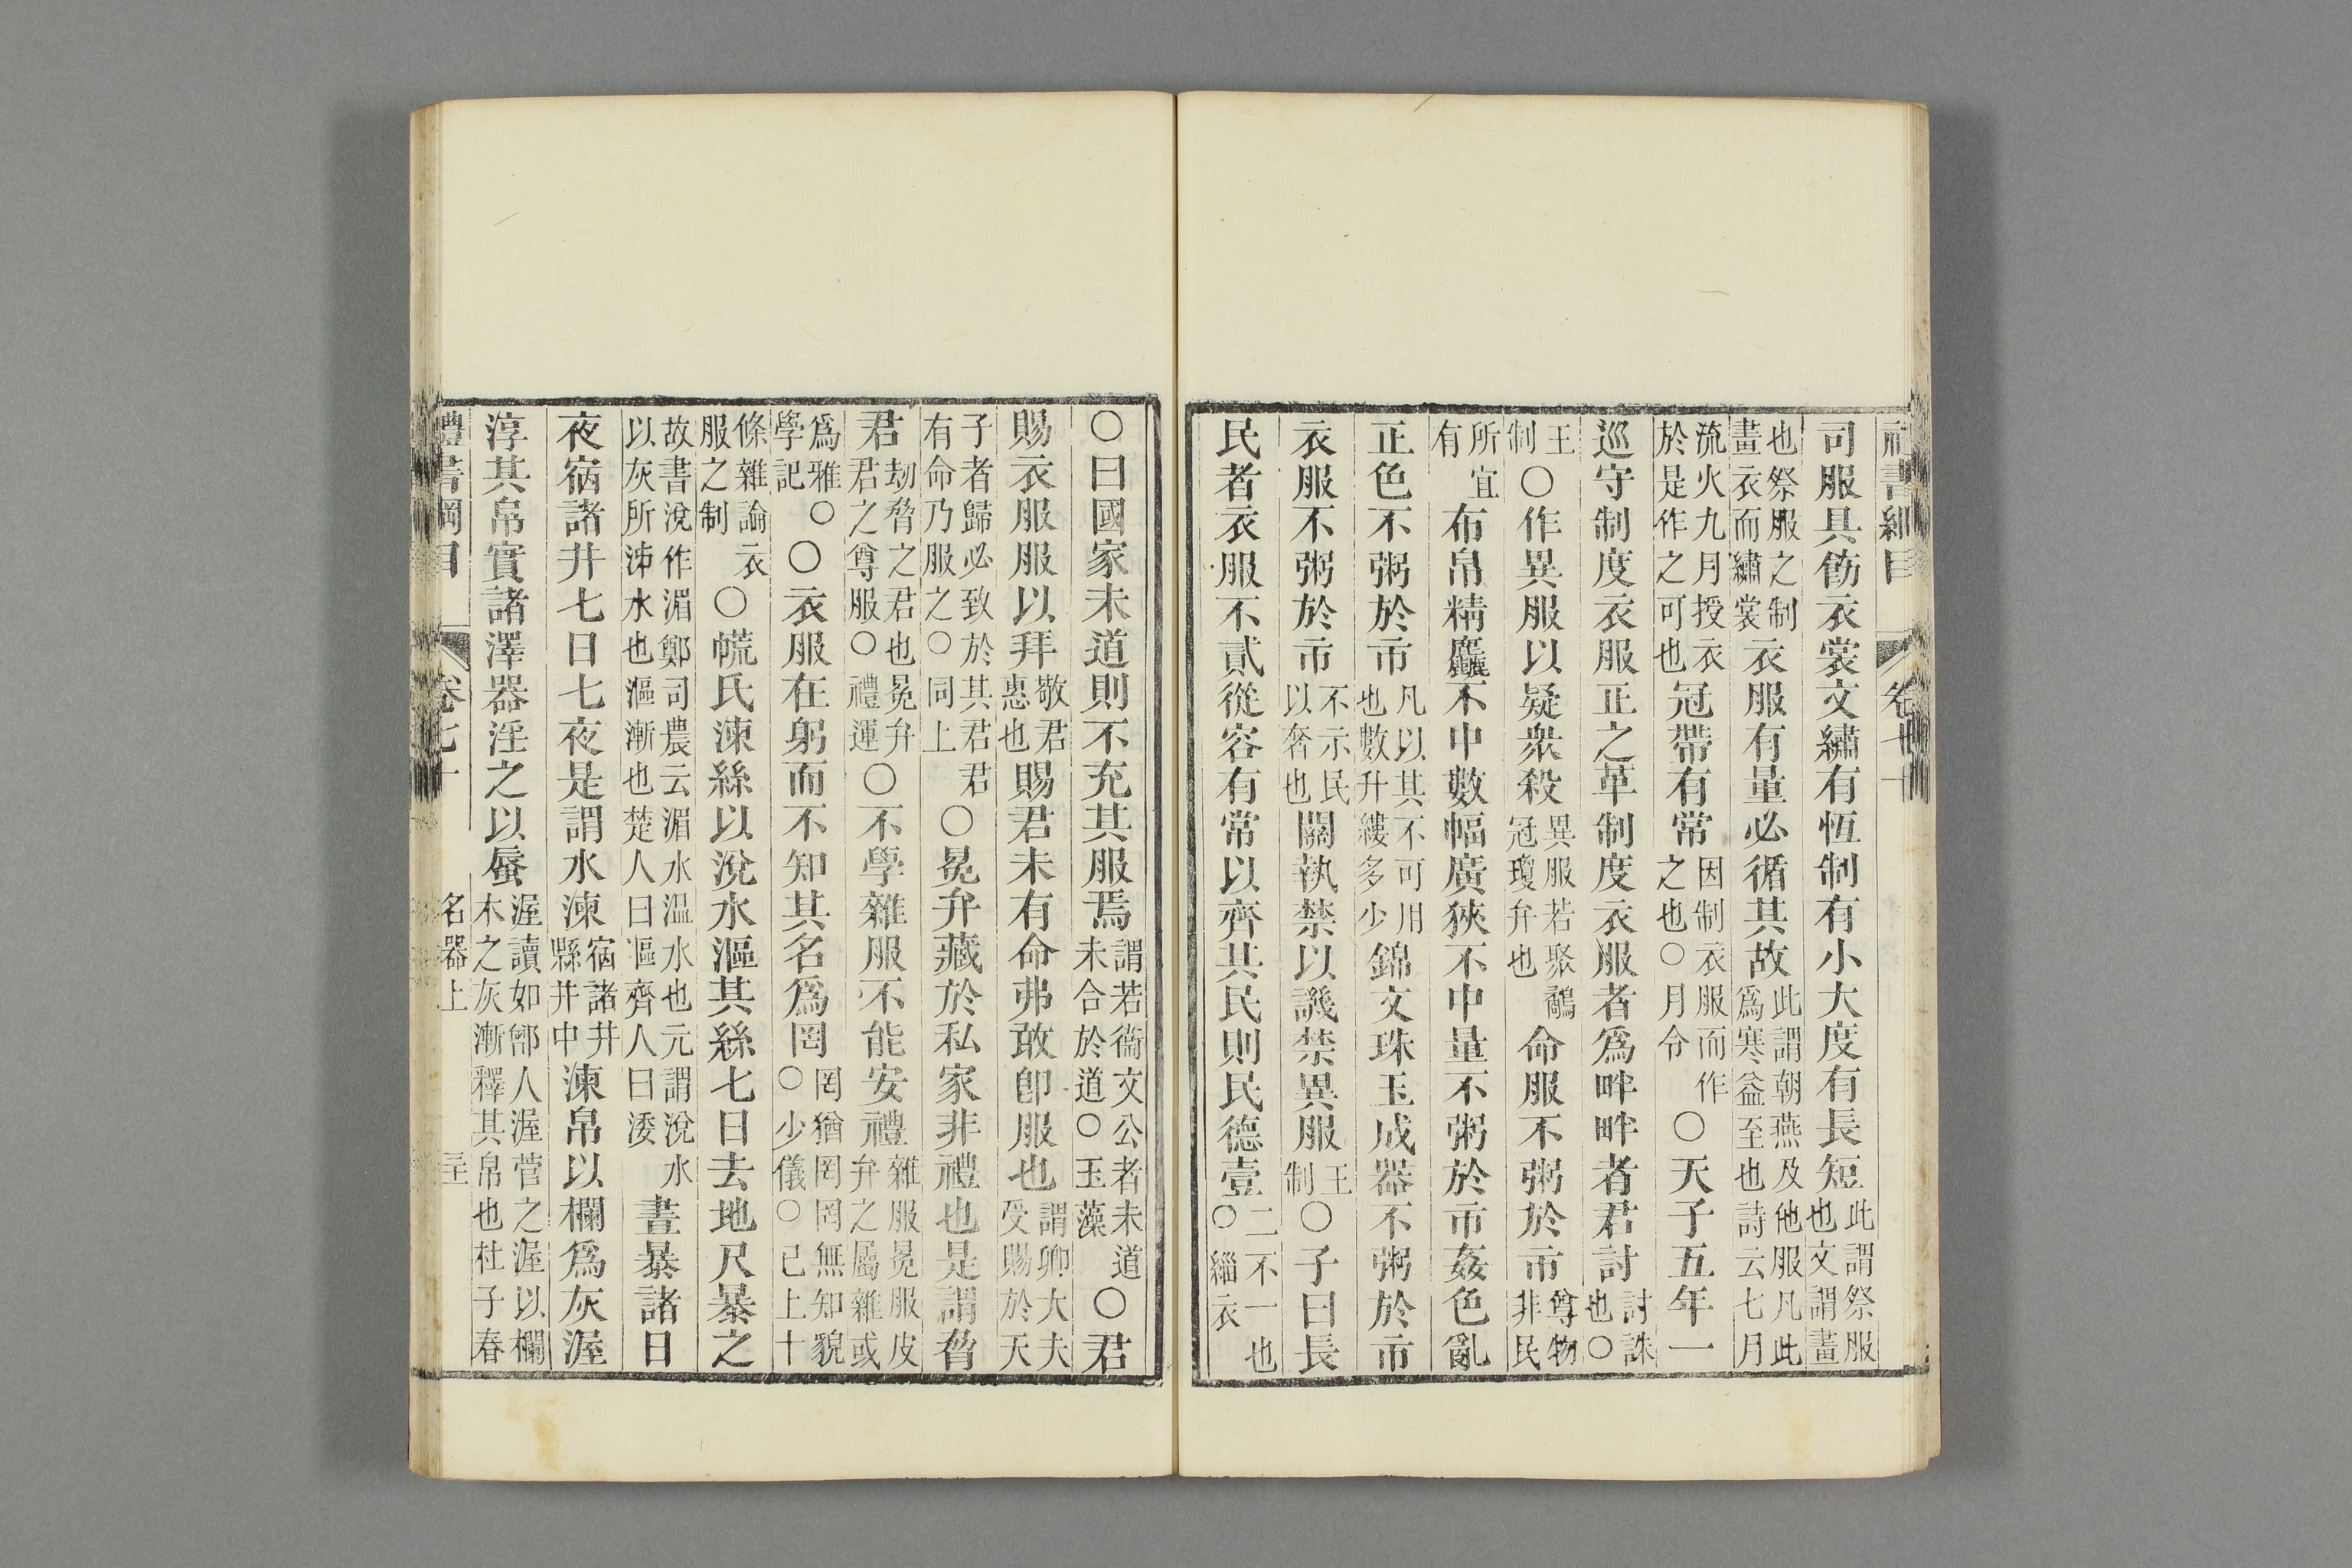 禮書綱目 卷七十
司服具飭衣裳文繡有恆制有小大度有長短此謂祭服也文謂畫
也祭服之制畫衣而繡裳衣服有量必循其故此謂朝燕及他服凡此爲寒益至也詩云七月
流火九月授衣於是作之可也冠帶有常因制衣服而作之也○月令○天子五年一
巡守制度衣服正之革制度衣服者爲畔畔者君討討誅也○
王制○作異服以疑衆殺異服若聚鷸冠瓊弁也命服不粥於市尊物非民
所宜有布帛精麤不中數幅廣狹不中量不粥於市姦色亂
正色不粥於市凡以其不可用也數升縷多少錦文珠玉成器不粥於市
衣服不粥於市不示民以奢也關執禁以譏禁異服王制○子曰長
民者衣服不貳從容有常以齊其民則民德壹二不一也○緇衣
○曰國家未道則不充其服焉謂若衞文公者未道未合於道○玉藻○君
賜衣服服以拜敬君惠也賜君未有命弗敢卽服也謂卿大夫受賜於天
子者歸必致於其君君有命乃服之○同上○冕弁藏於私家非禮也是謂脅
君劫脅之君也冕弁君之尊服○禮運○不學雜服不能安禮雜服冕服皮弁之屬雜或
爲雅○學記○衣服在躬而不知其名爲罔罔猶罔罔無知貌○少儀○已上十
條雜論衣服之制○㡛氏湅絲以涗水漚其絲七日去地尺暴之
故書涗作湄鄭司農云湄水温水也元謂涗水以灰所沛水也漚漸也楚人曰漚齊人曰涹晝暴諸日
夜宿諸井七日七夜是謂水湅宿諸井縣井中湅帛以欄爲灰渥
淳其帛實諸澤器淫之以蜃渥讀如鄫人渥菅之渥以欄木之灰漸釋其帛也杜子春
禮書綱目 卷七十 名器上